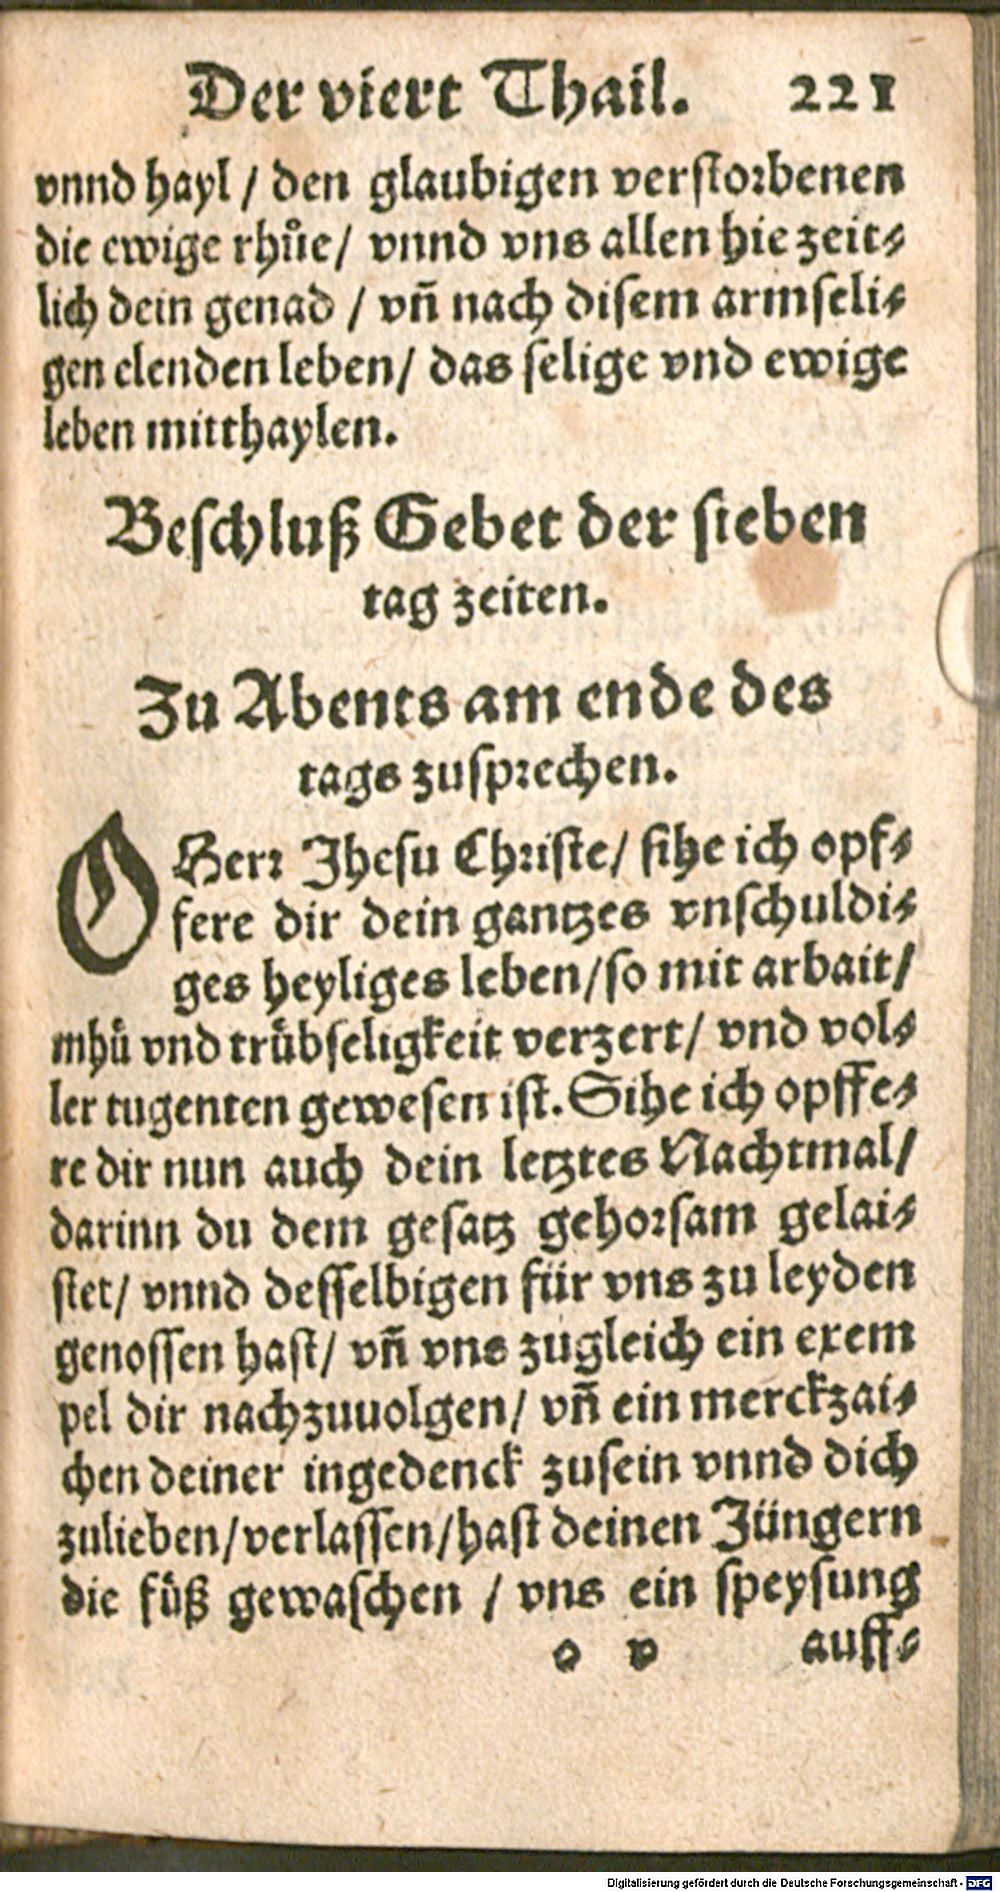 Der viert Thail. 221
vnnd hayl / den glaubigen verstorbenen
die ewige rhůe / vnnd vns allen hie zeit⸗
lich dein genad / vñ nach disem armseli⸗
gen elenden leben / das selige vnd ewige
leben mitthaylen.
Beschluß Gebet der sieben
tag zeiten.
Zu Abents am ende des
tags zusprechen.
O Herr Jhesu Christe / sihe ich opf⸗
fere dir dein gantzes vnschuldi⸗
ges heyliges leben / so mit arbait /
mhů vnd trůbseligkeit verzert / vnd vol⸗
ler tugenten gewesen ist. Sihe ich opffe⸗
re dir nun auch dein letztes Nachtmal /
darinn du dem gesatz gehorsam gelai⸗
stet / vnnd desselbigen für vns zu leyden
genossen hast / vñ vns zugleich ein exem
pel dir nachzuuolgen / vñ ein merckzai⸗
chen deiner ingedenck zusein vnnd dich
zulieben / verlassen / hast deinen Jüngern
die füß gewaschen / vns ein speysung
o v auff⸗
Digitalisierung gefördert durch die Deutsche Forschungsgemeinschaft - DFG